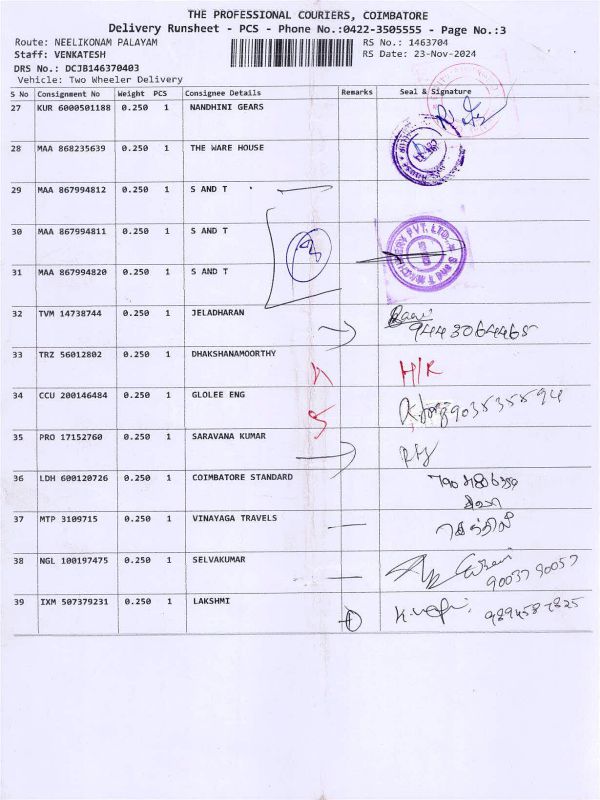 THE PROFESSIONAL COURIERS, COIMBATORE
Delivery Runsheet - PCS - Phone No.:0422-3505555 - Page No.:3
Route: NEELIKONAM PALAYAM RS No.: 1463704
Staff: VENKATESH RS Date: 23-Nov-2024
DRS No.: DCJB146370403
Vehicle: Two Wheeler Delivery
S No Consignment No Weight PCS Consignee Details Remarks Seal & Signature
27 KUR 6000501188 0.250 1 NANDHINI GEARS
28 MAA 868235639 0.250 1 THE WARE HOUSE
29 MAA 867994812 0.250 1 S AND T
30 MAA 867994811 0.250 1 S AND T
31 MAA 867994820 0.250 1 S AND T
32 TVM 14738744 0.250 1 JELADHARAN
9443064465
33 TRZ 56012802 0.250 1 DHAKSHANAMOORTHY H/K
34 CCU 200146484 0.250 1 GLOLEE ENG
35 PRO 17152760 0.250 1 SARAVANA KUMAR
36 LDH 600120726 0.250 1 COIMBATORE STANDARD
37 MTP 3109715 0.250 1 VINAYAGA TRAVELS
38 NGL 100197475 0.250 1 SELVAKUMAR 9003790057
39 IXM 507379231 0.250 1 LAKSHMI 9894587825